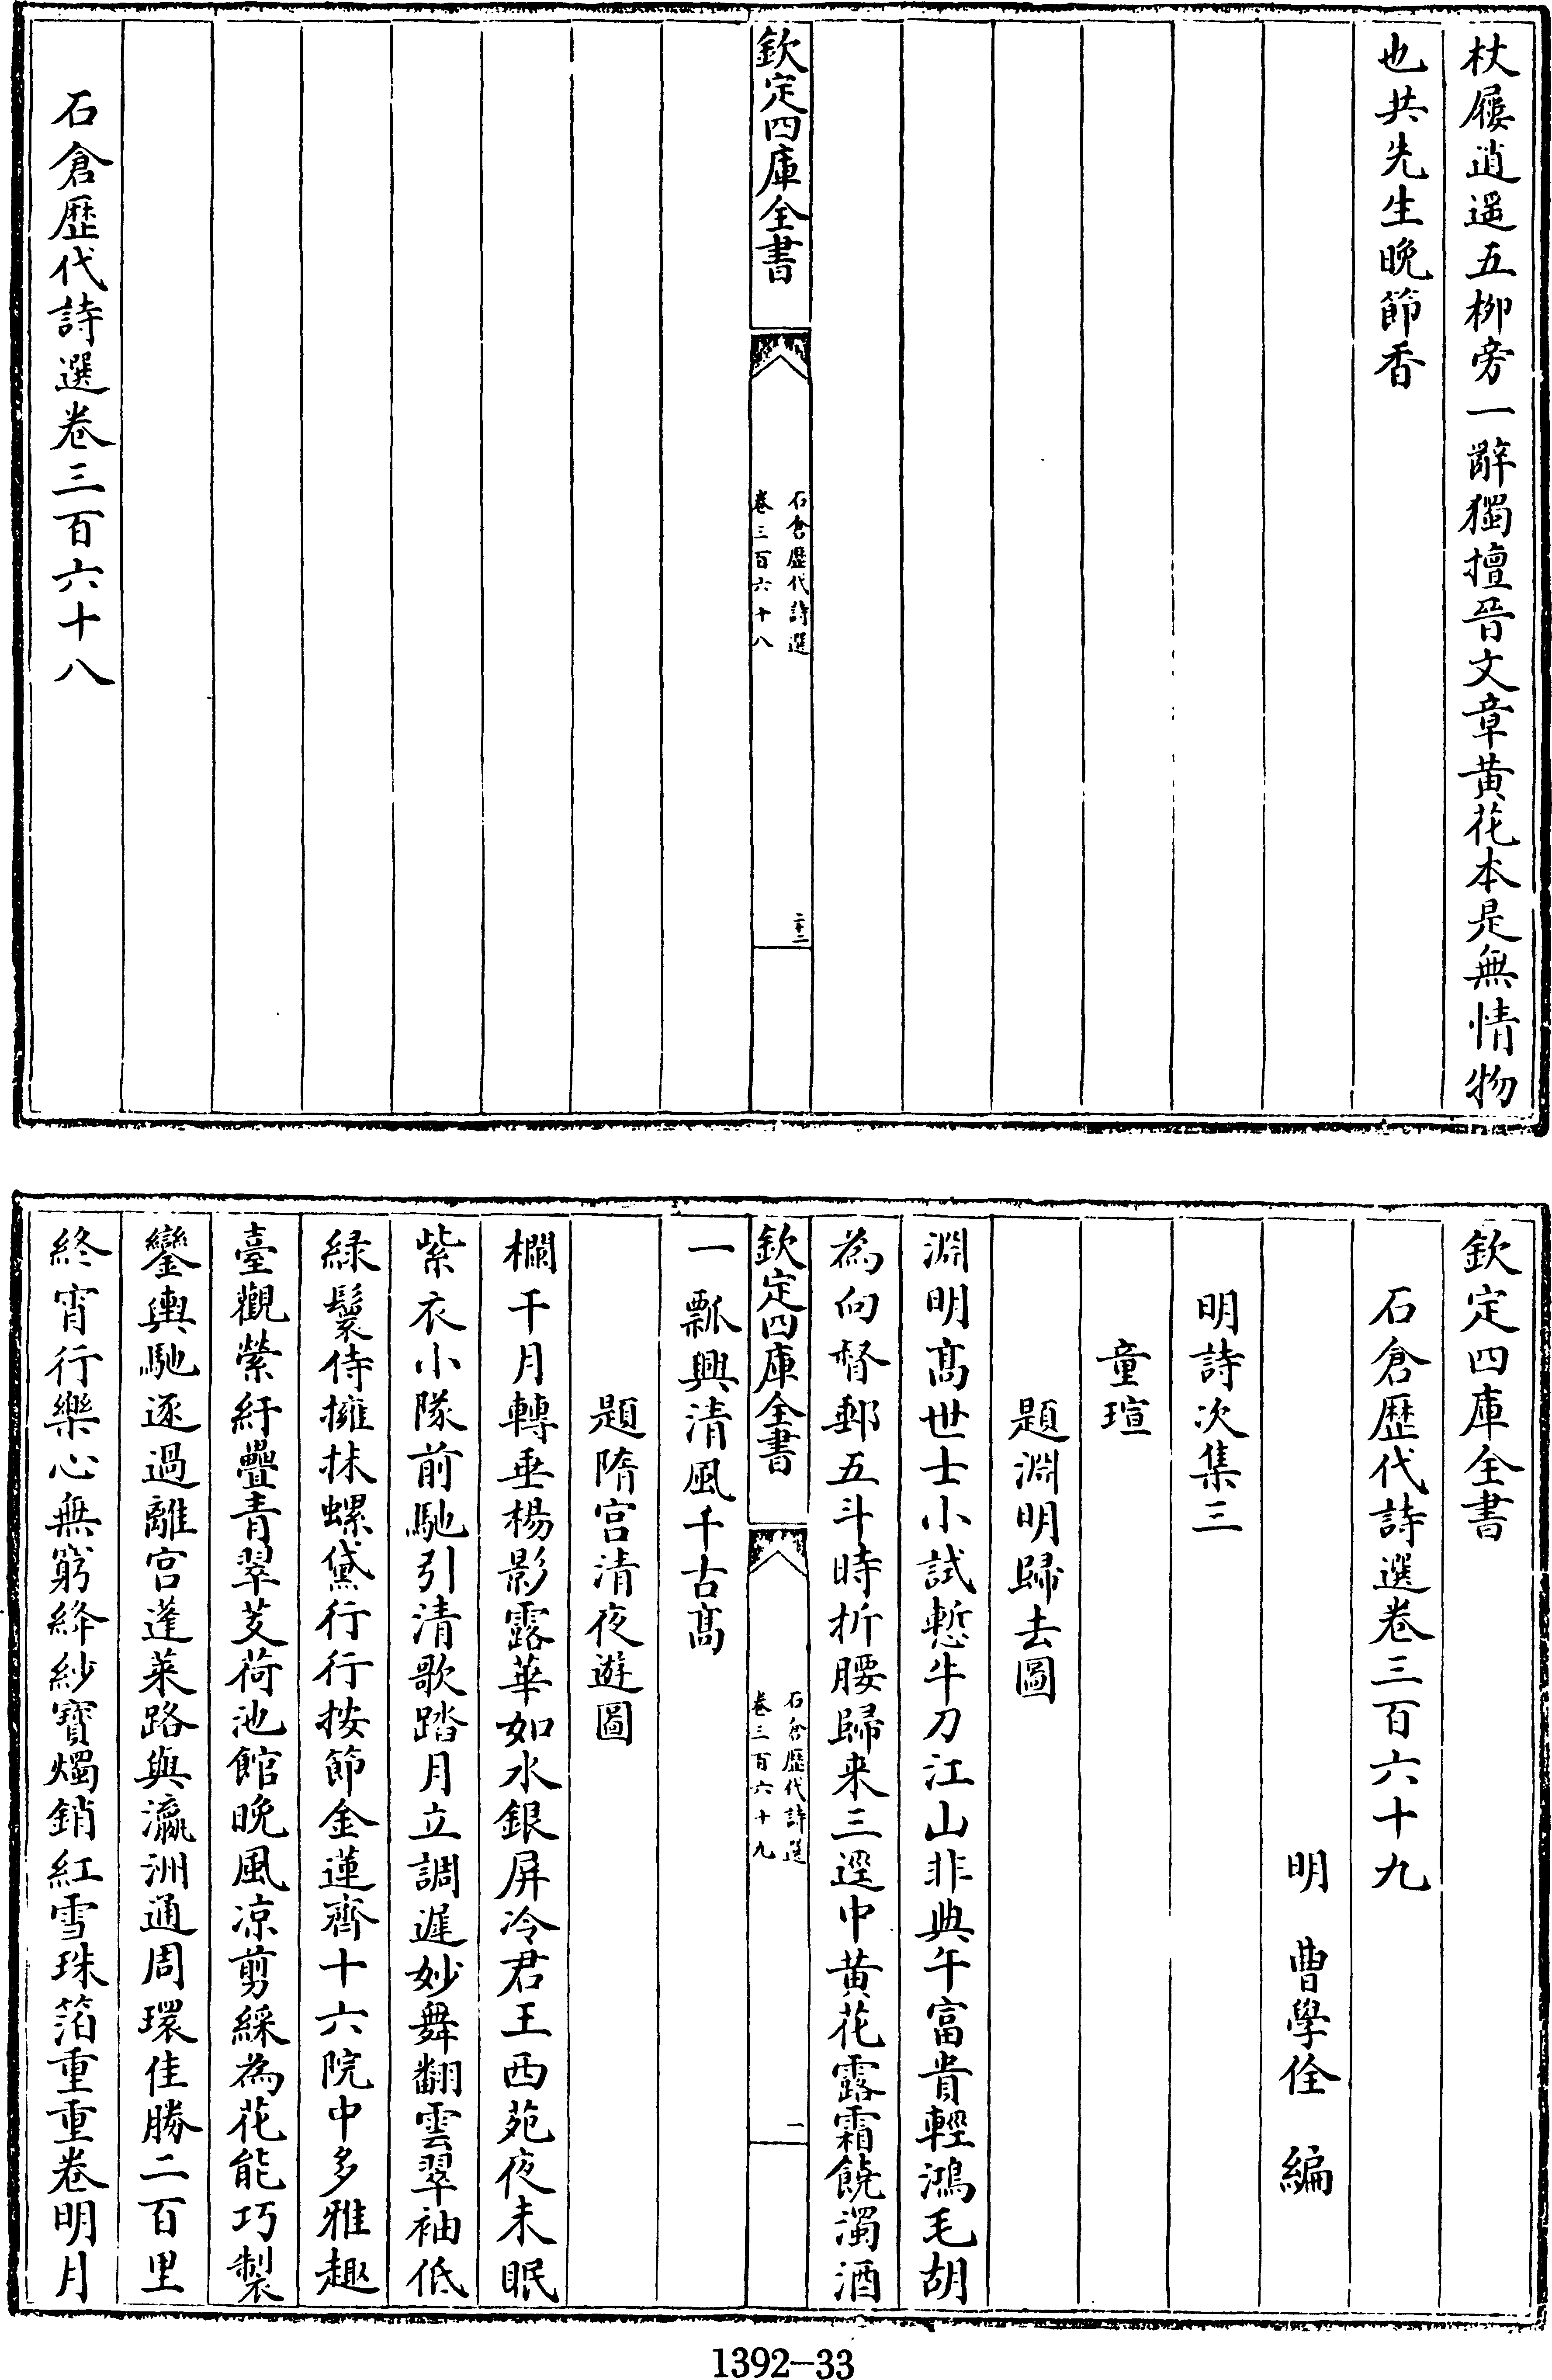 杖屨逍遥五柳旁一辭獨擅晉文章黄花本是無情物
也共先生晚節香
欽定四庫全書
石倉歷代詩選
卷三百六十八
二十二
石倉歴代詩選卷三百六十八
欽定四庫全書
石倉歴代詩選卷三百六十九
明 曹學佺 編
明詩次集三
童瑄
題淵明歸去圖
淵明髙世士小試慙牛刀江山非典午富貴輕鴻毛胡
為向督郵五斗時折腰歸来三逕中黄花露霜饒濁酒
欽定四庫全書
石倉歷代詩選
卷三百六十九
一
一瓢興清風千古髙
題隋宫清夜遊圖
欄干月轉垂楊影露華如水銀屏冷君王西苑夜未眠
紫衣小隊前馳引清歌踏月立調遲妙舞翻雲翠袖低
緑鬟侍擁抹螺黛行行按節金蓮齊十六院中多雅趣
臺觀縈紆疊青翠芰荷池館晚風凉剪綵為花能巧製
鑾輿馳逐過離宫蓬萊路與瀛洲通周環佳勝二百里
終宵行樂心無窮絳紗寳燭銷紅雪珠箔重重卷明月
1392-33